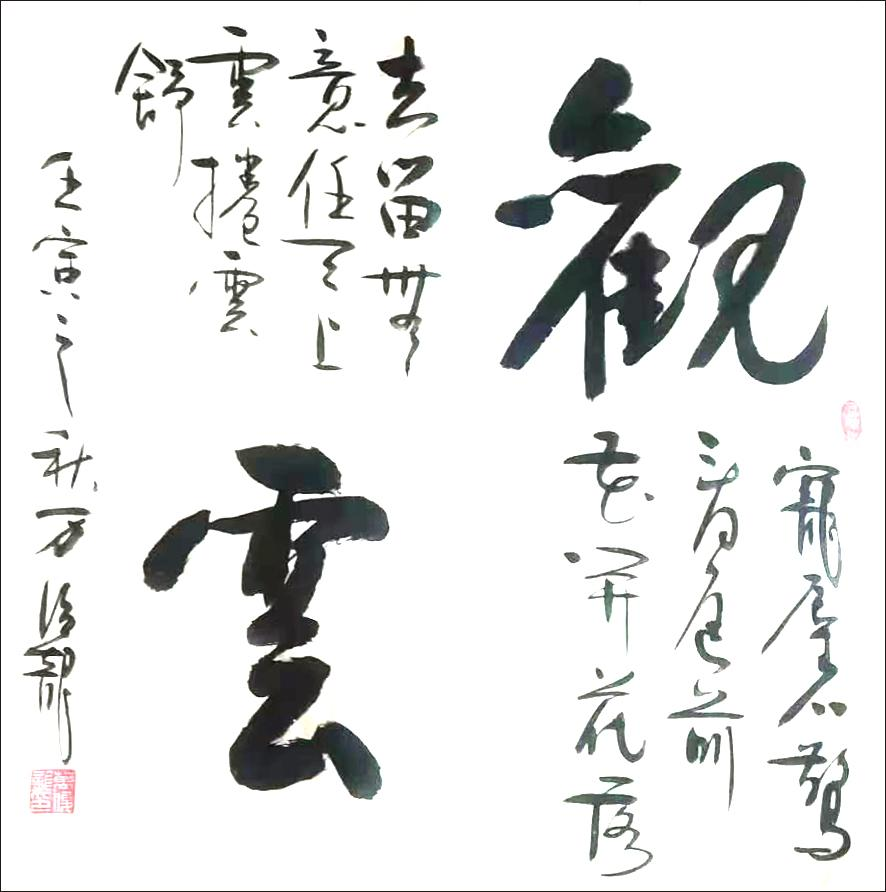 觀
寵辱不驚
看庭前
花開花落
雲
去留無
意任天上
雲捲雲
舒
壬寅之秋万